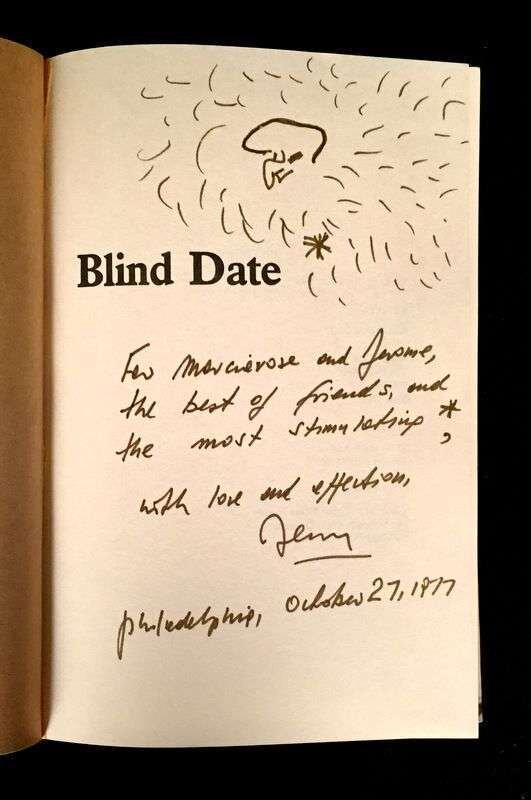 Blind Date *
For Marcierose and Jerome,
the best of friends, and
the most stimulating *,
with love and affection,
Jerzy
Philadelphia, October 27, 1977